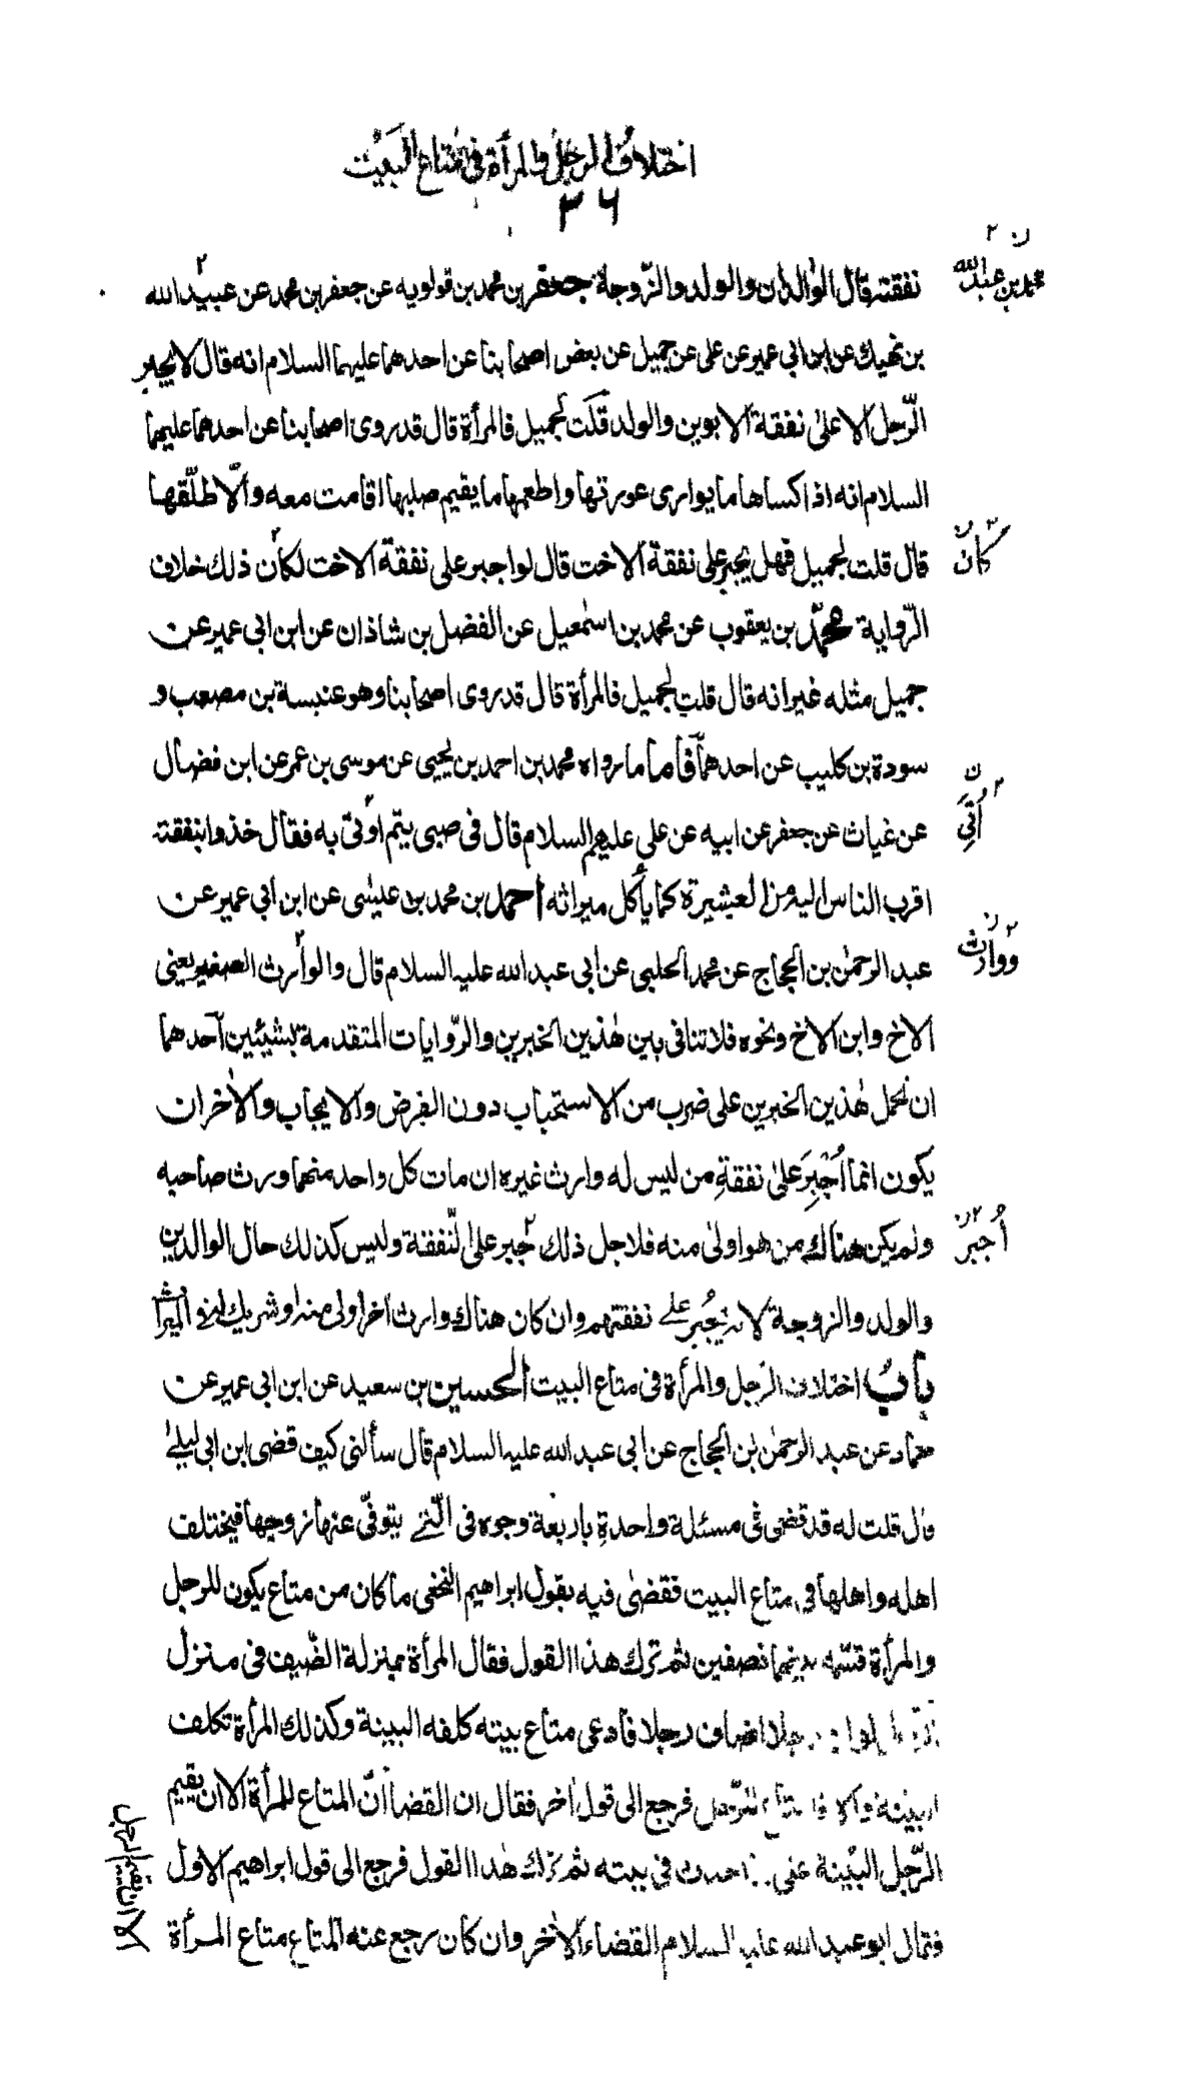 اختلاف الرجل والمرأة في متاع البيت
٣٦
نفقته قال الوالدان والولد والزّوجة جعفر بن محمد بن قولويه عن جعفر بن محمد عن عبيد الله
ن ٢ محمد بن عبد الله
بن نهيك عن ابن ابي عمير عن على عن جميل عن بعض اصحابنا عن احدهما عليهما السلام انه قال لا يجبر
الرّجل الا على نفقة الابوين والولد قلت لجميل فالمرأة قال قد روى اصحابنا عن احدهما عليهما
السلام انه اذا كساها ما يوارى عورتها واطعمها ما يقيم صلبها اقامت معه والّا طلّقها
قال قلت لجميل فهل يجبر على نفقة الاخت قال لو اجبر على نفقة الاخت لكان ذلك خلاف
كان
الرّواية محمّد بن يعقوب عن محمد بن اسمٰعيل عن الفضل بن شاذان عن ابن ابى عمير عن
جميل مثله غير انه قال قلت لجميل فالمرأة قال قد روى اصحابنا وهو عنبسة بن مصعب و
سودة بن كليب عن احدهما فاما ما رواه محمد بن احمد بن يحيى عن موسى بن عمر عن ابن فضال
عن غياث عن جعفر عن ابيه عن على عليهم السلام قال فى صبى يتم اوتى به فقال خذوا بنفقته
ن ٢ اُتِيَ
اقرب الناس اليه من العشيرة كما يأكل ميراثه احمد بن محمد بن عليسى عن ابن ابي عمير عن
عبد الرحمٰن بن الحجاج عن محمد الحلبى عن ابى عبد الله عليه السلام قال والوارث الصغير يعنى
ن ٢ ووارث
الاخ وابن الاخ ونحوه فلا تنافى بين هٰذين الخبرين والرّوايات المتقدمة لشيئين احدهما
ان نحمل هٰذين الخبرين على ضرب من الاستحباب دون الفرض والايجاب والاٰخر ان
يكون انما اُجْبِرَ على نفقةِ من ليس له وارث غيره ان مات كل واحد منهما ورث صاحبه
ولم يكن هناك من هو اولى منه فلاجل ذلك جبر على النّفقة وليس كذلك حال الوالدين
٢ ن اُجبر
والولد والزوجة لانه يُجبر على نفقتهم وان كان هناك وارث اٰخر اولى منه او شريك له فى الميراث
بابُ اختلاف الرّجل والمرأة فى متاع البيت الحسين بن سعيد عن ابن ابى عمير عن
حماد عن عبد الرحمٰن بن الحجاج عن ابى عبد الله عليه السلام قال سألنى كيف قضى ابن ابى ليلى
قال قلت له قد قضى فى مسئلة واحدةٍ باربعة وجوه فى الّتى يتوفّى عنها زوجها فيختلف
اهله واهلها فى متاع البيت فقضٰى فيه بقول ابراهيم النخعى ما كان من متاع يكون للرجل
والمرأة قسّمه بينهما نصفين ثم ترك هذا القول فقال المرأة بمنزلة الضّيف فى منزل
رجلا اضاف رجلا فادعى متاع بيته كلفه البينة وكذلك المرأة تكلف
البينة والا فالمتاع للرّجل فرجع الى قول اٰخر فقال ان القضاء انّ المتاع للمرأة الا ان يقيم
الرّجل البيّنة على احدث فى بيته ثم ترك هٰذا القول فرجع الى قول ابراهيم الاول
فقال ابو عبد الله عليه السلام القضاء الاٰخر وان كان رجع عنه المتاع متاع المرأة
الا ان يقيم الرجل